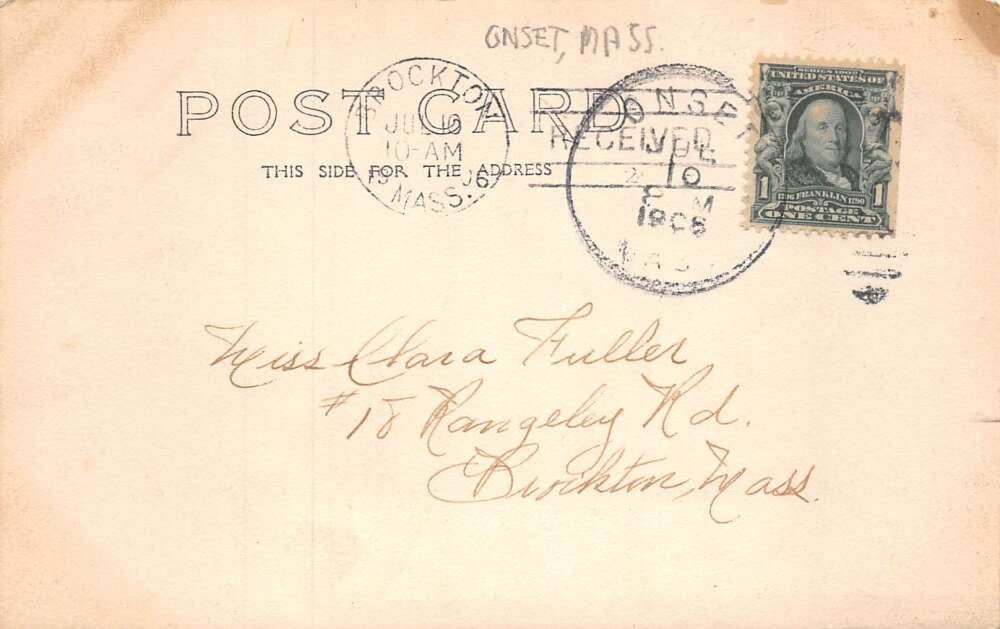 ONSET, MASS.
POST CARD
THIS SIDE FOR THE ADDRESS
BROCKTON
10-AM
MASS.
RECEIVED
ONSET
10
P M
1906
SERIES 1902
UNITED STATES OF
AMERICA
1 1
1706 FRANKLIN 1790
POSTAGE
ONE CENT
Miss Clara Fuller
#18 Rangeley Rd.
Brockton, Mass.